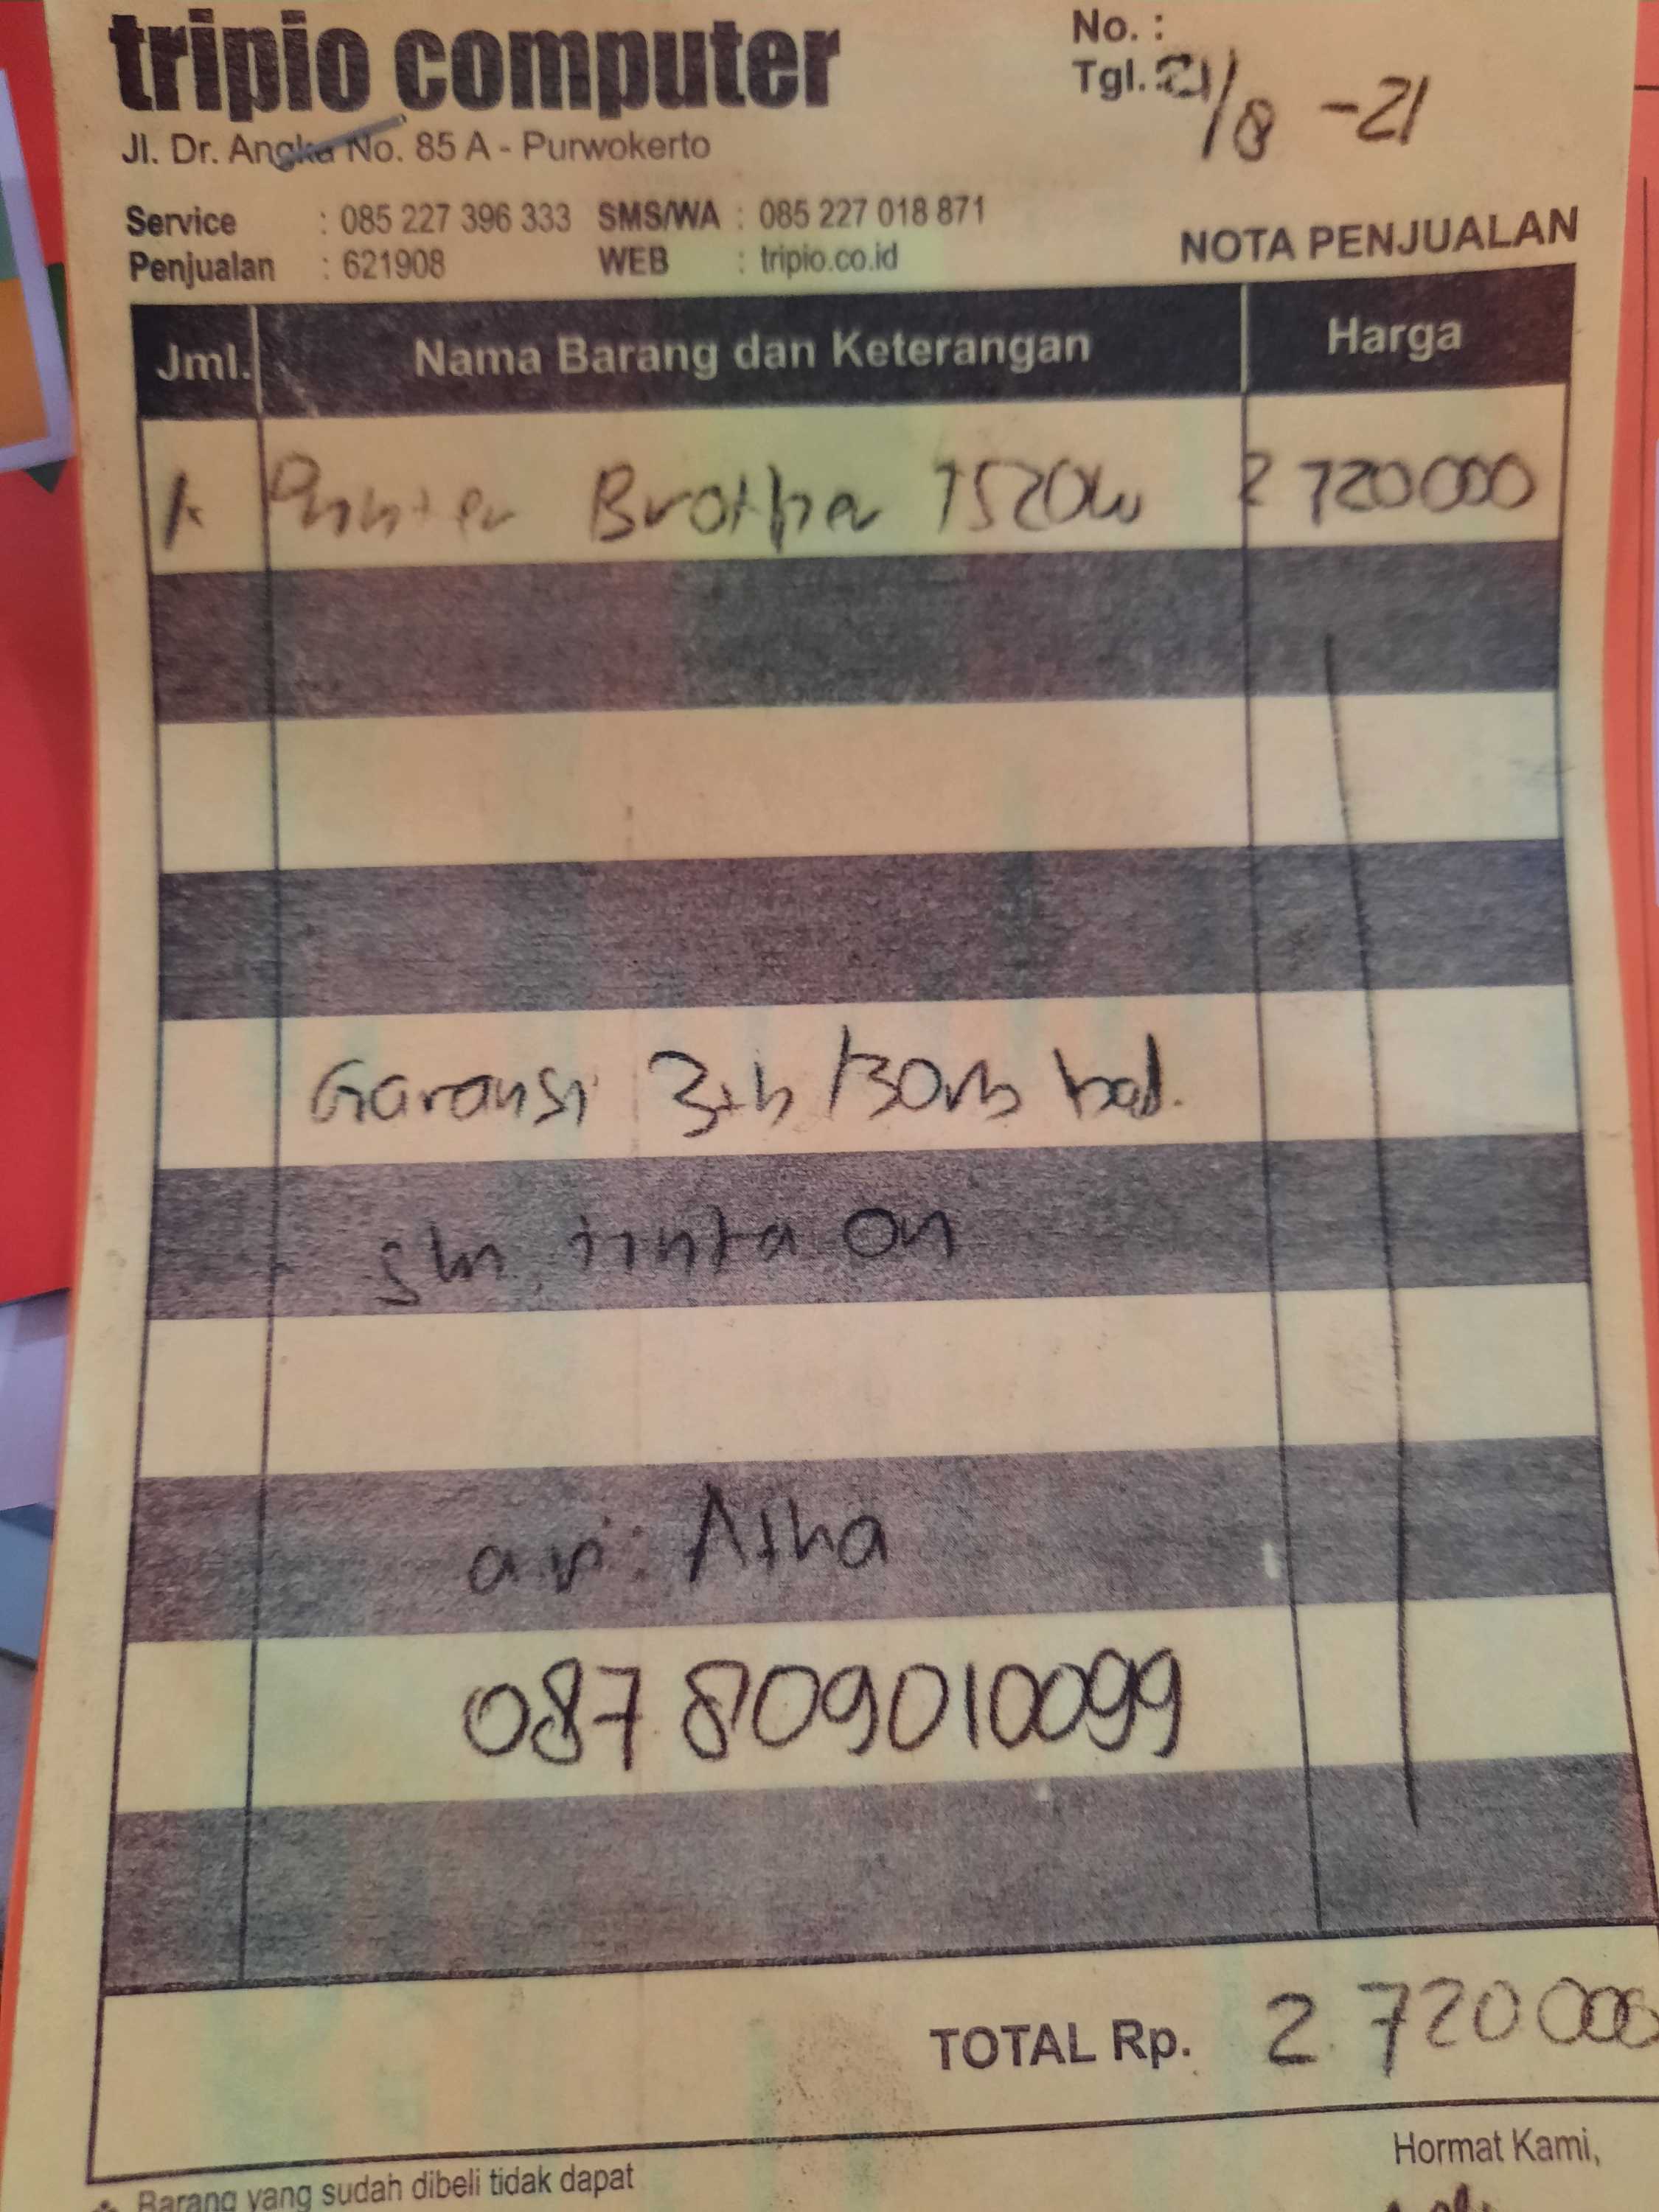 tripio computer
No. :
Tgl. 21/8 -21
Jl. Dr. Angka No. 85 A - Purwokerto
Service : 085 227 396 333 SMS/WA : 085 227 018 871
Penjualan : 621908 WEB : tripio.co.id
NOTA PENJUALAN
Jml. Nama Barang dan Keterangan Harga
1 Printer Brother T520W 2 720000
Garansi 3th/30rb
tinta ori
an: Atha
087 809010099
TOTAL Rp. 2.720000
Hormat Kami,
Barang yang sudah dibeli tidak dapat